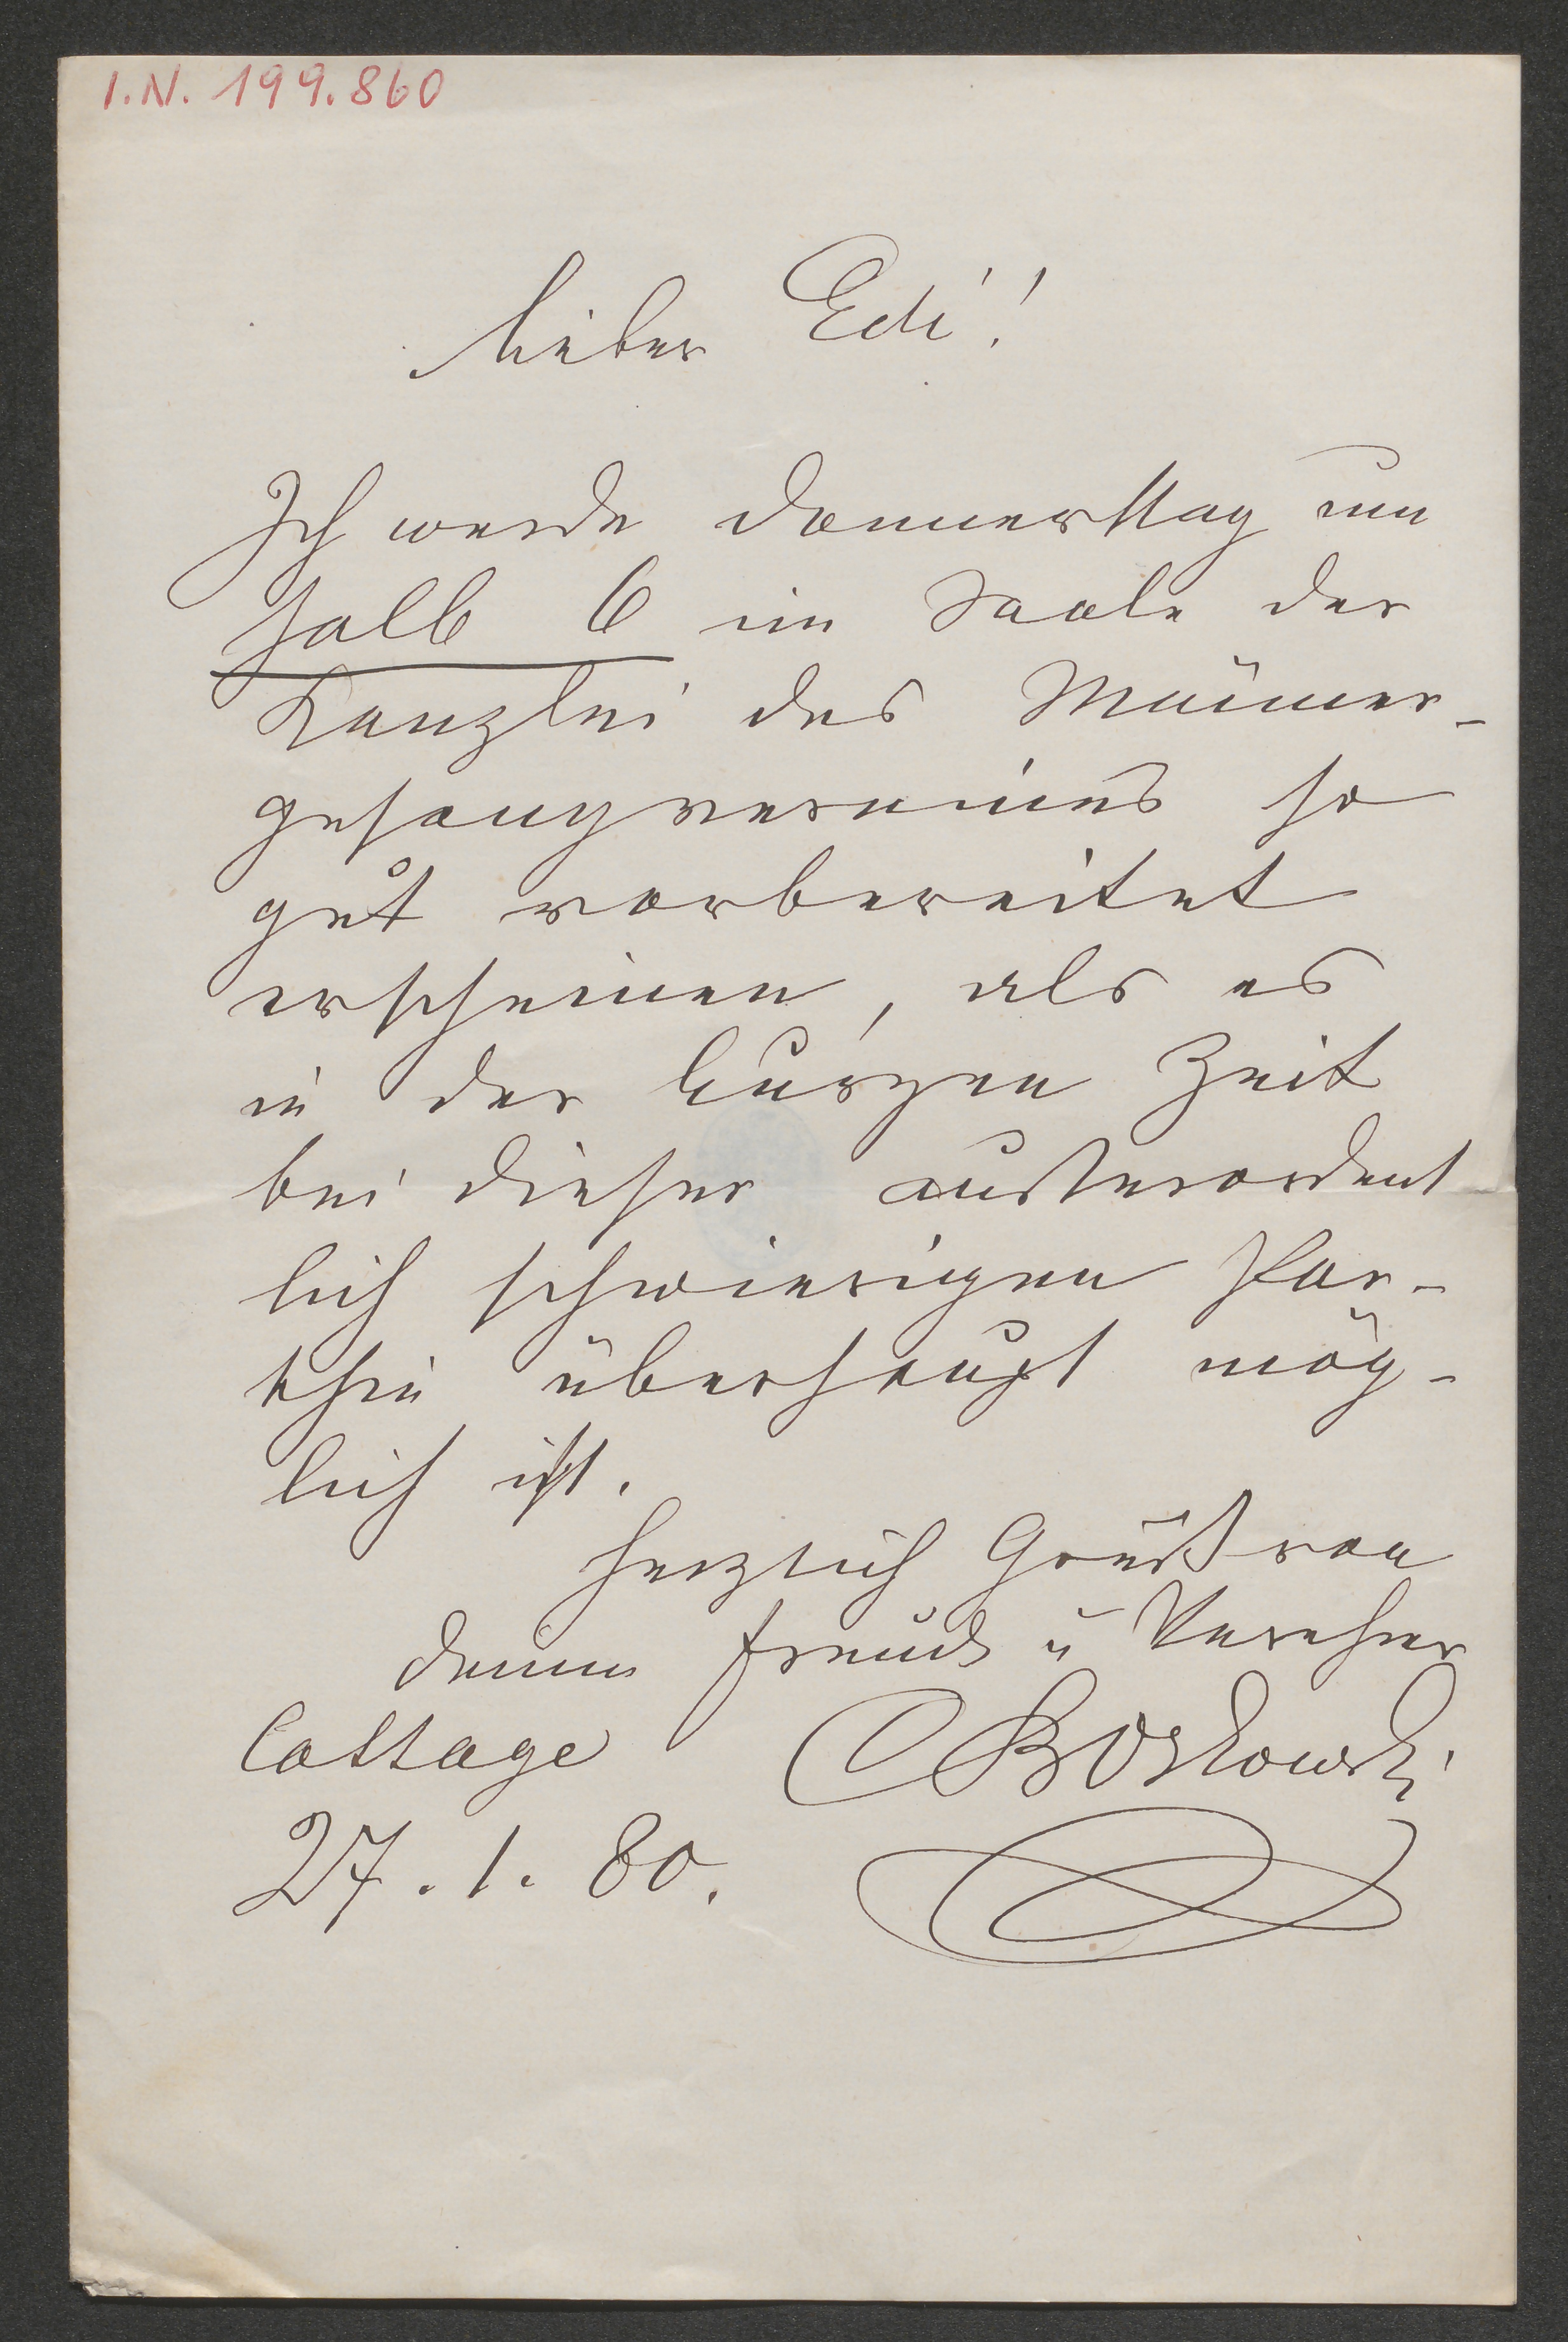 I.N. 199.860
Lieber Edi!
Ich werde Donnerstag um
halb 6 im Saale der
Kanzlei des Männer-
gesangvereines so
gut vorbereitet
erscheinen, als es
in der kurzen Zeit
bei dieser außerordent
lich schwierigen Par-
thie überhaupt mög-
lich ist.
Herzlich Grüßt von
Deinem Freund u Verehrer
Cottage CBOskowski
27.1.80.